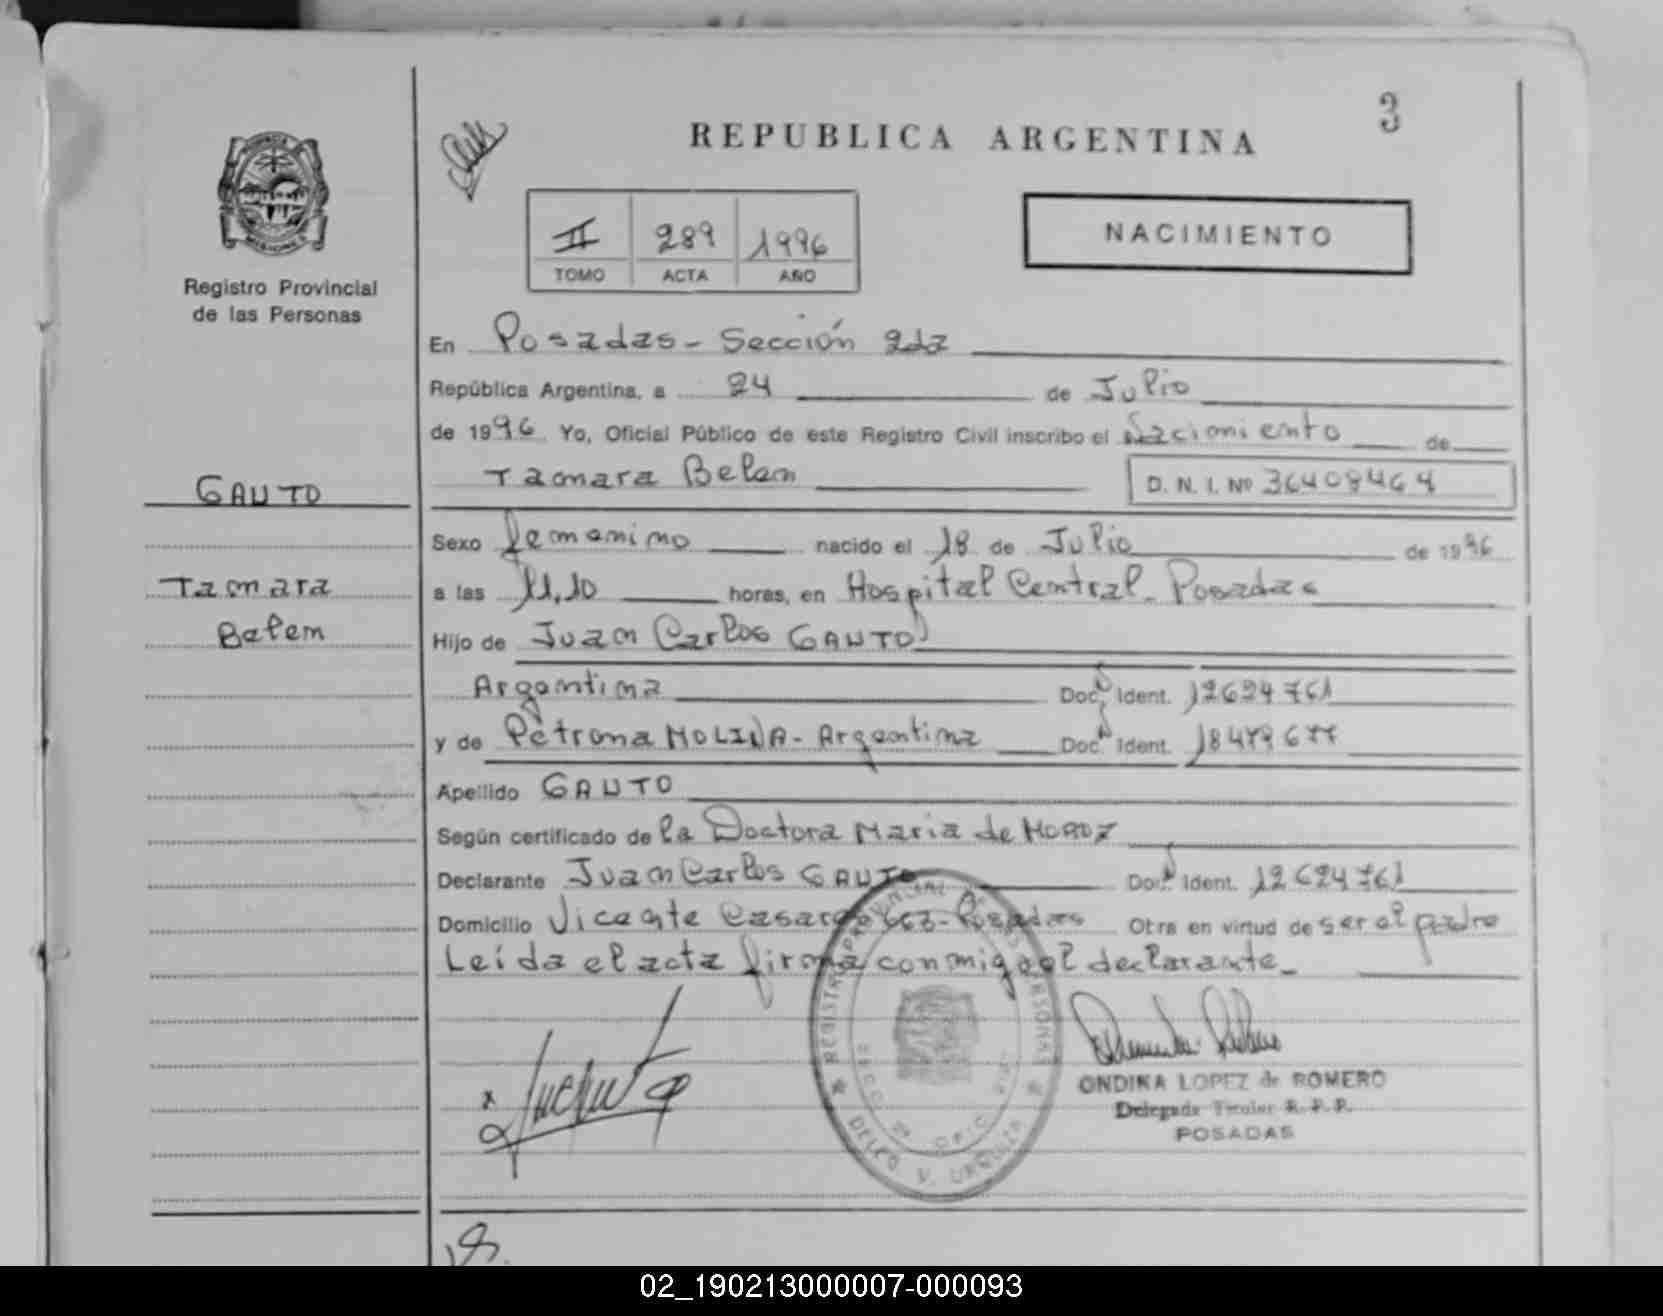 3
REPUBLICA ARGENTINA
II 289 1996
TOMO ACTA AÑO
NACIMIENTO
Registro Provincial
de las Personas
En Posadas - Sección 2da
República Argentina, a 24 de Julio
de 1996 Yo, Oficial Público de este Registro Civil inscribo el Nacimiento de
Tamara Belem D. N. I. Nº
GAUTO
Sexo femenino nacido el 18 de Julio de 1996
Tamara
a las 11,10 horas, en Hospital Central - Posadas
Belem
Hijo de Juan Carlos GAUTO
Argentina Doc. Ident. 12624761
y de Petrona MOLINA - Argentina Doc. Ident.
Apellido GAUTO
Según certificado de la Doctora Maria de
Declarante Juan Carlos GAUTO Doc. Ident. 12624761
Domicilio Vicente Casares 663 - Posadas Otra en virtud de ser el padre
Leída el acta firma conmigo el declarante -
REGISTRO PROVINCIAL DE LAS PERSONAS
DELEG V. URQUIZA
ONDINA LOPEZ de ROMERO
Delegada Titular R. P. P.
POSADAS
02_190213000007-000093